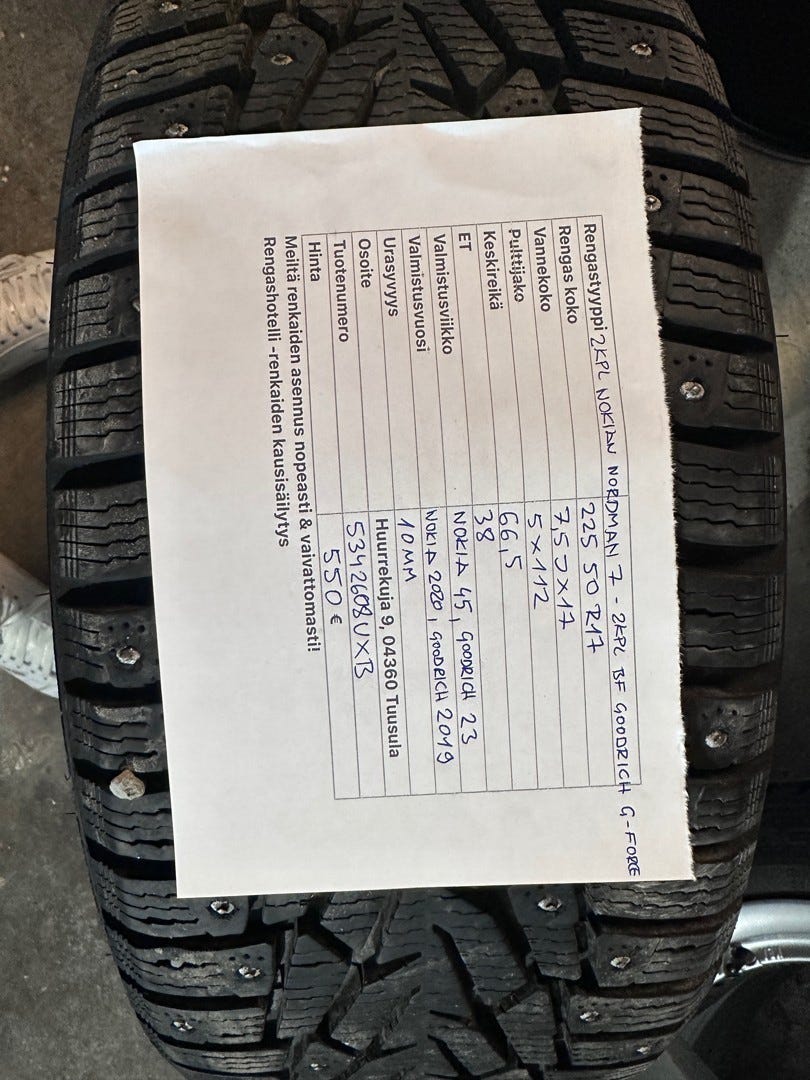 Rengastyyppi 2KPL NOKIAN NORDMAN 7 - 2KPL BF GOODRICH G-FORCE
Rengas koko 225 50 R17
Vannekoko 7 5 J x 17
Pulttijako 5 x 112
Keskireikä 66,5
ET 38
Valmistusviikko NOKIA 45, GOODRICH 23
Valmistusvuosi NOKIA 2020, GOODRICH 2019
Urasyvyys 10MM
Osoite Huurrekuja 9, 04360 Tuusula
Tuotenumero 5342608UXB
Hinta 550 €
Meiltä renkaiden asennus nopeasti & vaivattomasti!
Rengashotelli -renkaiden kausisäilytys